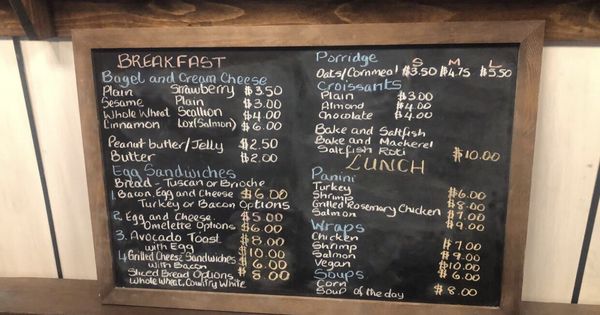 BREAKFAST
Bagel and Cream Cheese
Plain Strawberry $3.50
Sesame Plain $3.00
Whole Wheat Scallion $4.00
Cinnamon Lox(Salmon) $6.00
Peanut butter/Jelly $2.50
Butter $2.00
Egg Sandwiches
Bread - Tuscan or Brioche
1. Bacon, Egg and Cheese $6.00
Turkey or Bacon Options
2. Egg and Cheese $5.00
Omelette Options $6.00
3. Avocado Toast $8.00
with Egg $10.00
4. Grilled Cheese Sandwiches $6.00
with Bacon
Sliced Bread Options $8.00
Whole Wheat, Country White
Porridge S M L
Oats/Cornmeal $3.50 $4.75 $5.50
Croissants
Plain $3.00
Almond $4.00
Chocolate $4.00
Bake and Saltfish
Bake and Mackerel
Saltfish Roti $10.00
LUNCH
Panini
Turkey $6.00
Shrimp $8.00
Grilled Rosemary Chicken $7.00
Salmon $9.00
Wraps
Chicken $7.00
Shrimp $9.00
Salmon $10.00
Vegan $6.00
Soups
Corn
Soup of the day $8.00